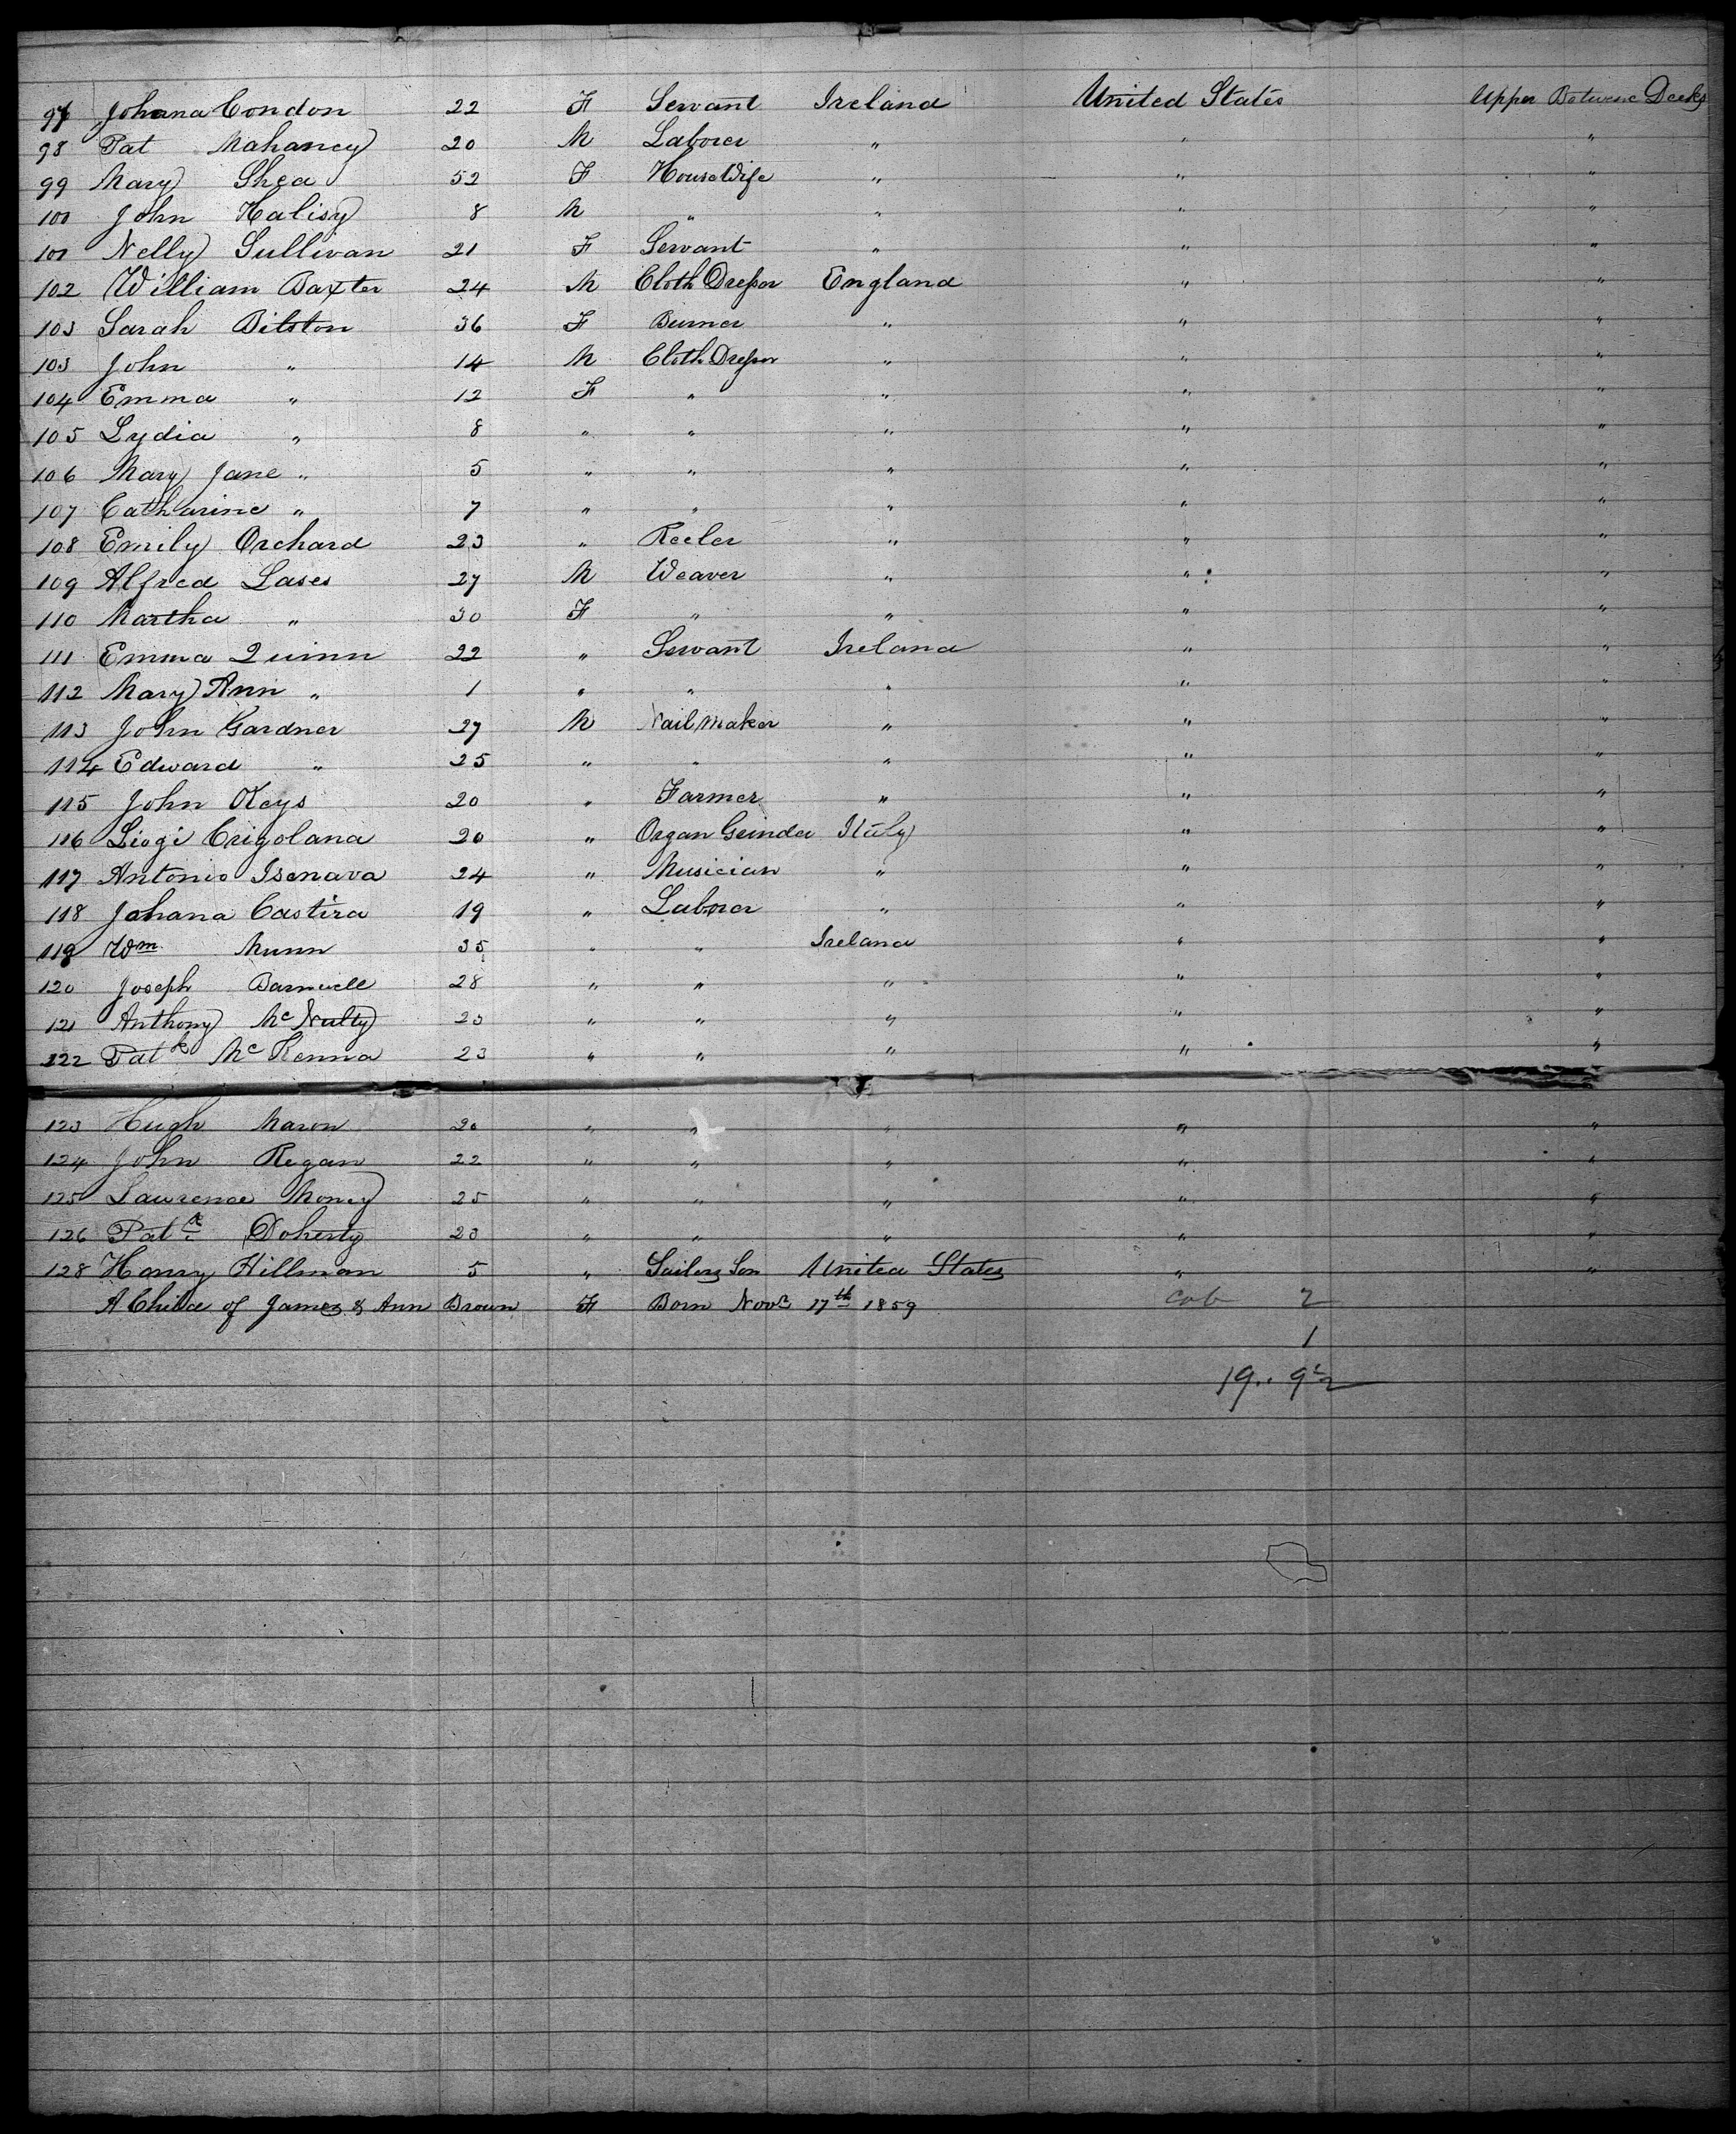 97 Johana Condon 22 F Servant Ireland United States Upper Betwene Decks
98 Pat Mahaney 20 M Laborer " " "
99 Mary Shea 52 F HouseWife " " "
100 John Halisy 8 M " " " "
101 Nelly Sullivan 21 F Servant " " "
102 William Baxter 24 M Cloth Dresser England " "
103 Sarah Bilston 36 F Burner " " "
103 John " 14 M Cloth Dresser " " "
104 Emma " 12 F " " " "
105 Lydia " 8 " " " " "
106 Mary Jane " 5 " " " " "
107 Catharine " 7 " " " " "
108 Emily Orchard 23 " Reeler " " "
109 Alfred Lases 27 M Weaver " " "
110 Martha " 30 F " " " "
111 Emma Quinn 22 " Servant Ireland " "
112 Mary Ann " 1 " " " " "
113 John Gardner 27 M Nail Maker " " "
114 Edward " 25 " " " " "
115 John Keys 20 " Farmer " " "
116 Liogi Crigolana 20 " Organ Grinder Italy " "
117 Antonio Isenava 24 " Musician " " "
118 Johana Castira 19 " Laborer " " "
119 Wm Munn 35 " " Ireland " "
120 Joseph Barnwell 28 " " " " "
121 Anthony McNulty 23 " " " " "
122 Patk McKenna 23 " " " " "
123 Hugh Maron 20 " " " " "
124 John Regan 22 " " " " "
125 Lawrence Money 25 " " " " "
126 Patk Doherty 23 " " " " "
128 Henry Hillman 5 " Sailors Son United States " "
A Child of James & Ann Brown F Born Novr 17th 1859 2
1
19..